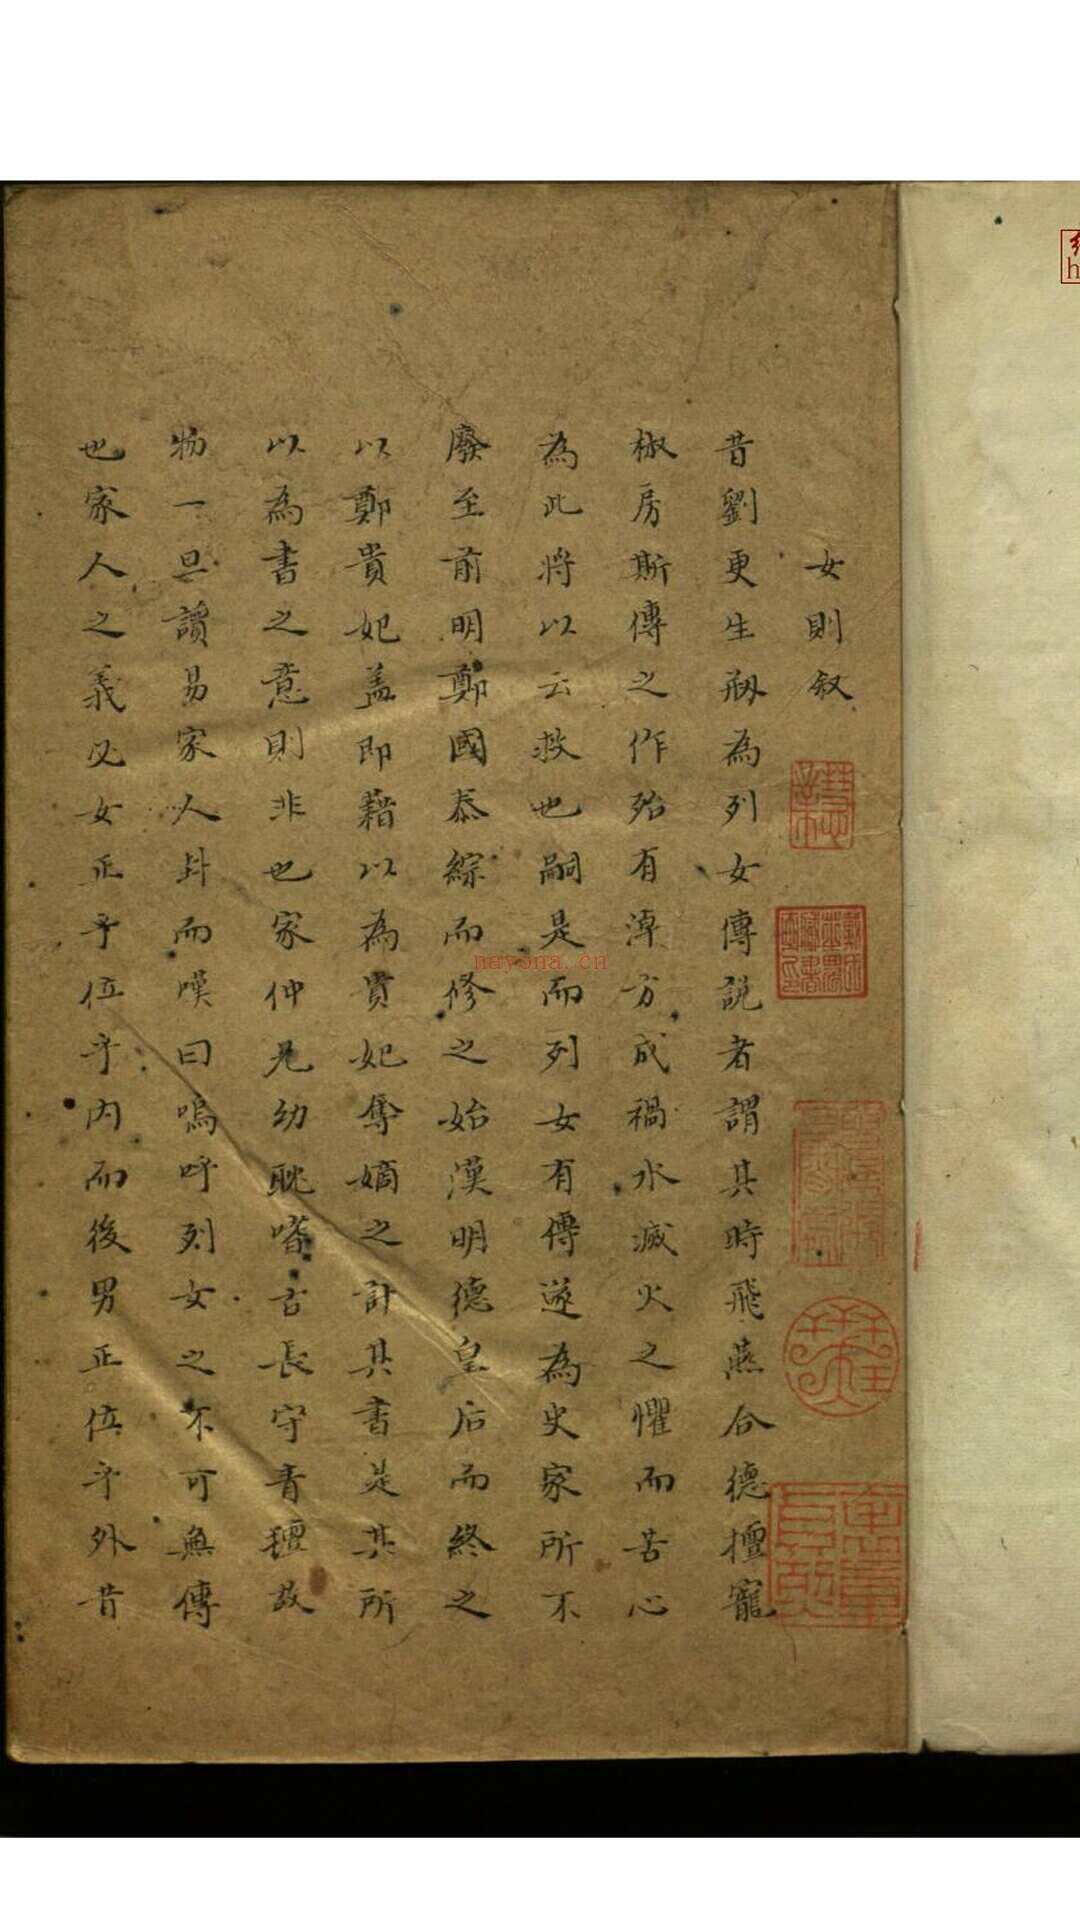 女則叙
昔劉更生剏為列女傳説者謂其時飛燕合德擅寵
椒房斯傳之作殆有淖方成禍水滅火之懼而苦心
為此將以云救也嗣是而列女有傳遂為史家所不
廢至前明鄭國泰綜而修之始漢明德皇后而終之
以鄭貴妃盖即藉以為貴妃奪嫡之計其書是其所
以為書之意則非也家仲兄幼耽嗜古長守青氊故
物一旦讀易家人卦而嘆曰嗚呼列女之不可無傳
也家人之義必女正乎位乎内而後男正位乎外昔
nayona.cn